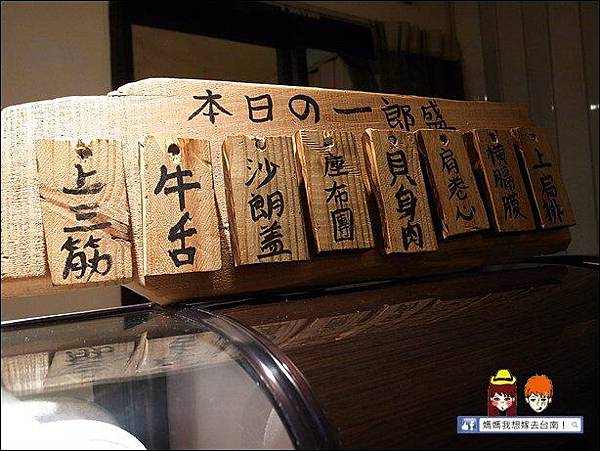 本日の一郎盛
上三筋
牛舌
沙朗蓋
座布團
貝身肉
肩卷心
橫膈膜
上肩排
媽媽我想嫁去台南！